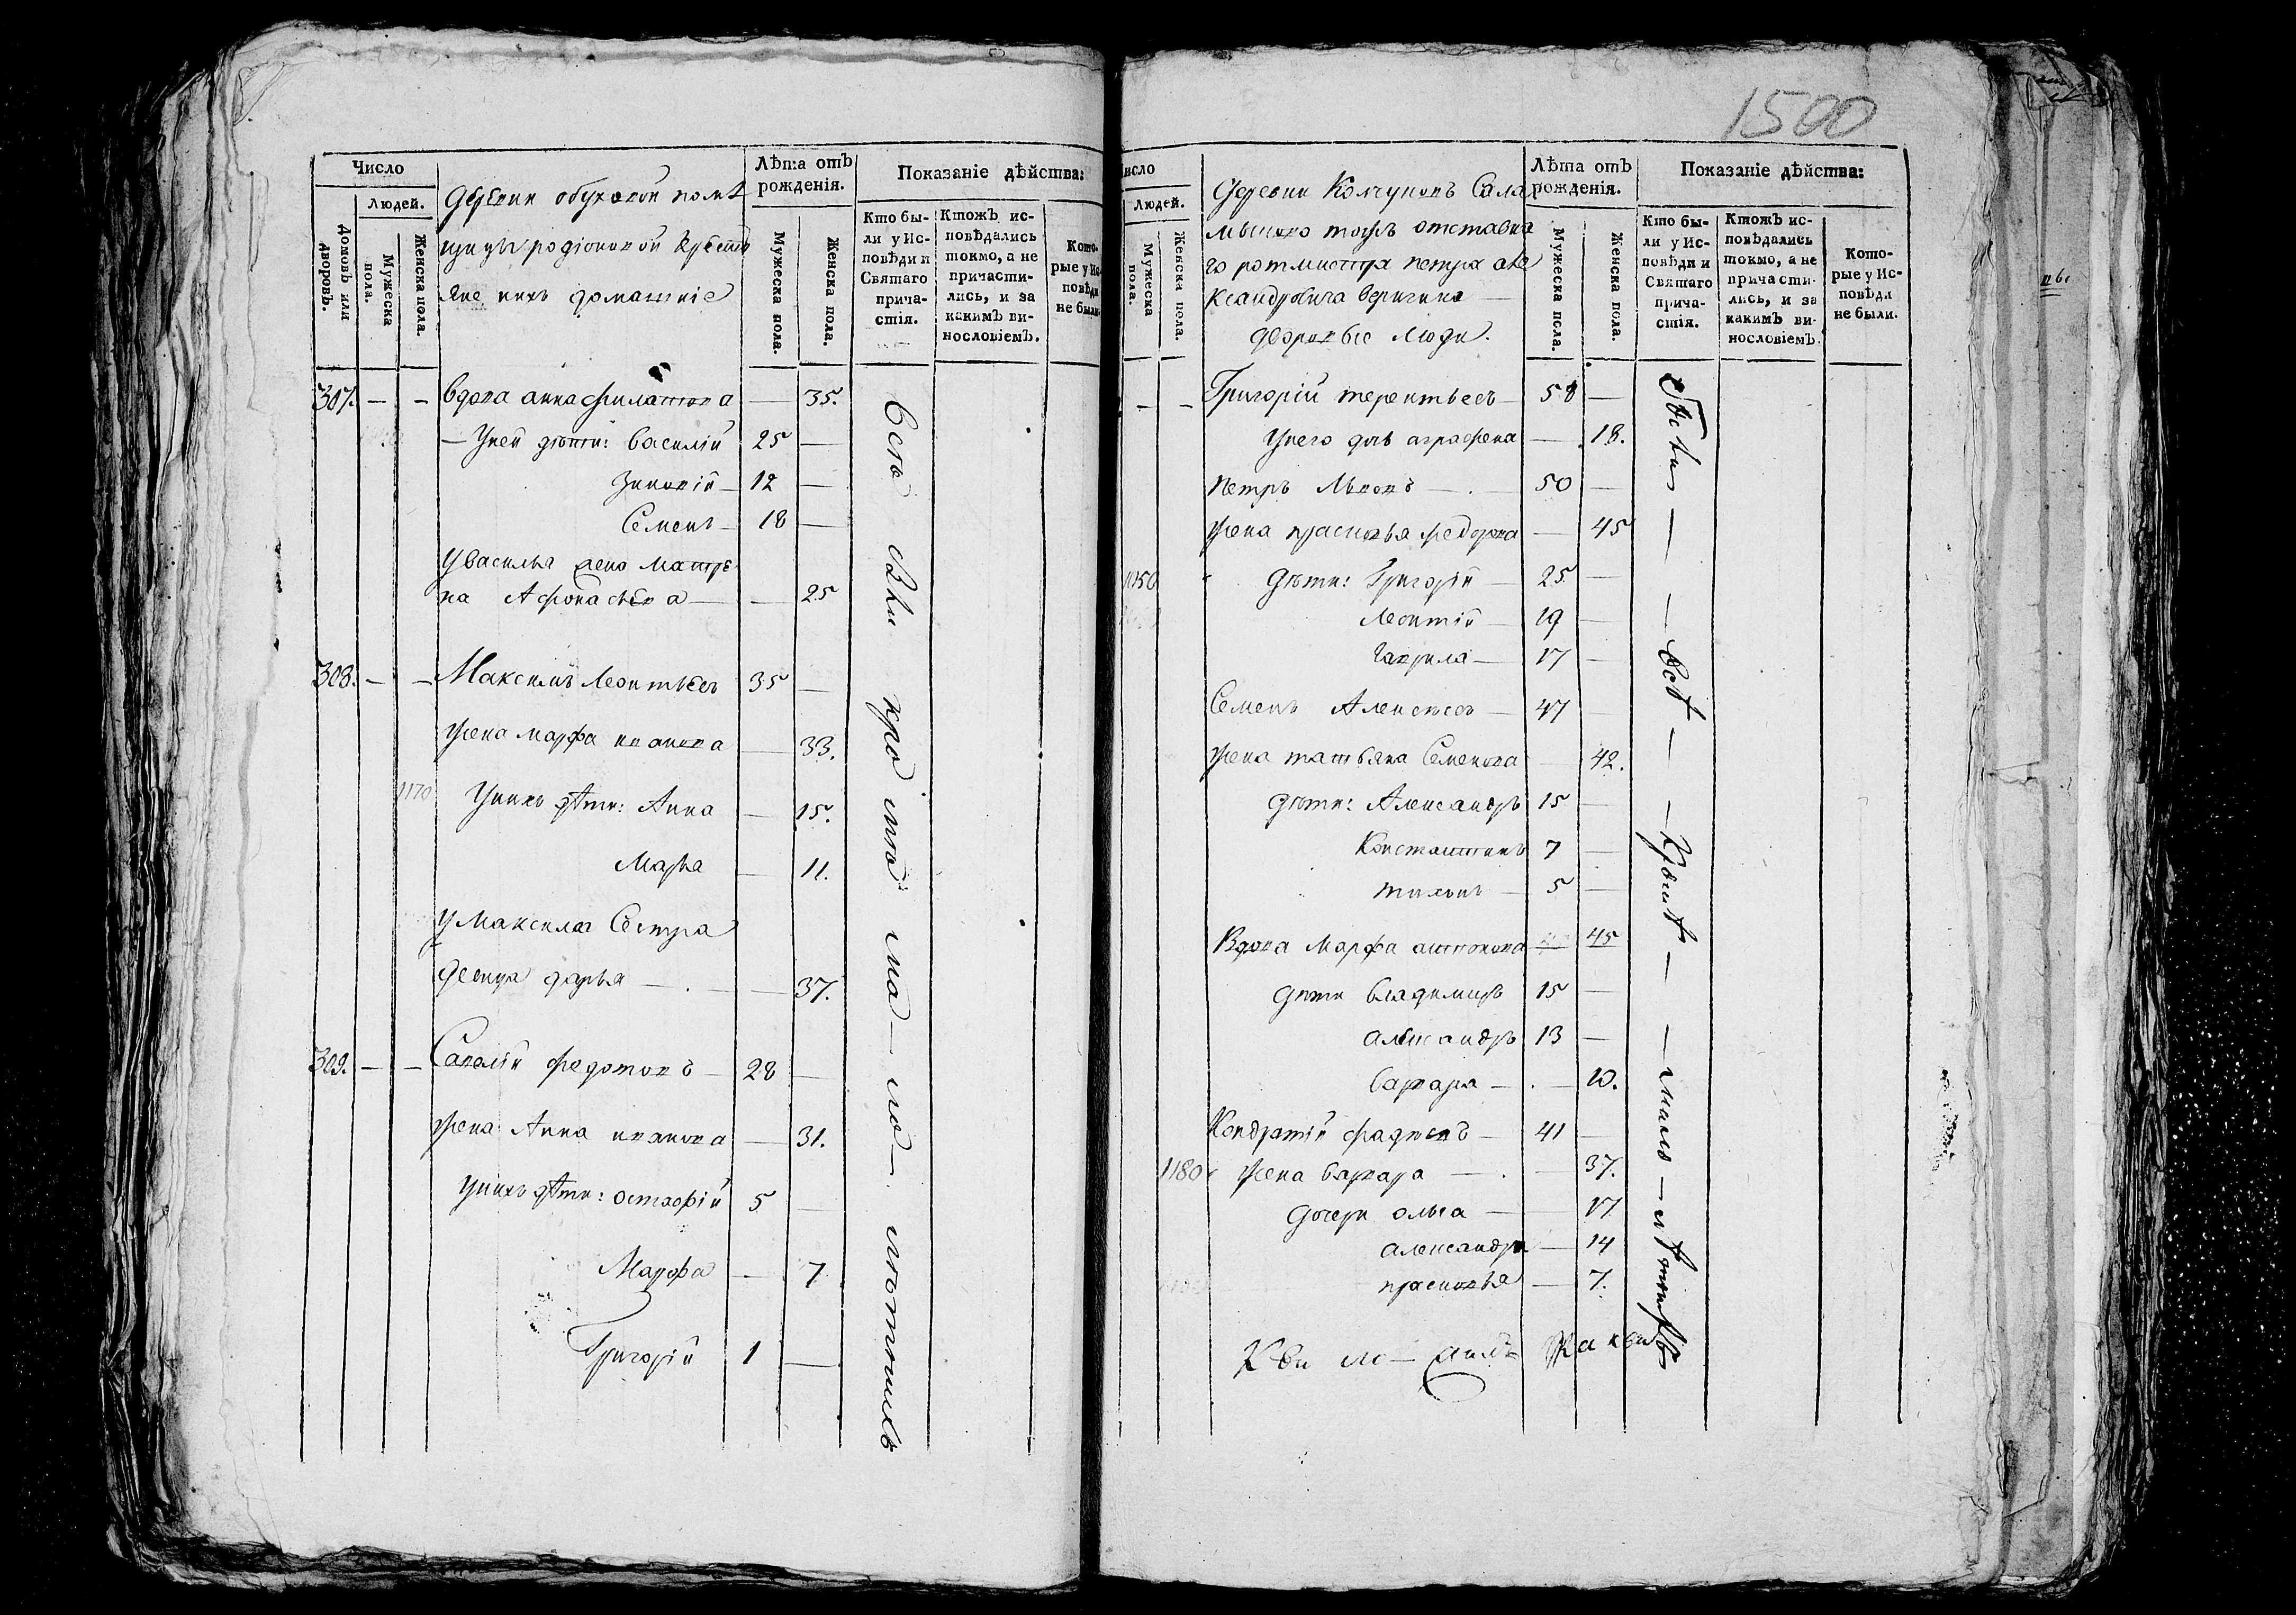 1500
Число
Людей.
Домовъ или дворовъ.
Мужеска пола.
Женска пола.
Деревни обуховой помѣ
щицы родіоновой Кресть
яне ихъ домашніе
Лѣта отъ рожденія.
Мужеска пола.
Женска пола.
Показаніе дѣйства:
Кто бы-
ли у Ис-
повѣди и
Святаго
прича-
стія.
Ктожъ ис-
повѣдались
токмо, а не
причасти-
лись, и за
какимъ ви-
нословіемъ.
Кото-
рые у Ис-
повѣди
не были.
307. — — вдова анна филатова — 35.
— У ней дѣти: василій 25 —
Зиновій — 12 —
Семенъ — 18 —
У василья жена Матре
на Афонасьева — — 25
308. — — Максимъ Леонтьевъ 35 —
жена марфа иванова — 33.
1170 У нихъ дѣти: Анна — 15.
Марья — 11.
У Максима Сестра
девица дарья — — 37.
309. — — Савелій федотовъ — 28 —
жена Анна иванова — 31.
У нихъ дѣти: остафій 5 —
Марфа — 7
Григорій 1 —
всѣ были кромѣ малолѣтнихъ
Число
Людей.
Мужеска пола.
Женска пола.
Деревни Колчуновъ Сала
отставна
го ротмистра петра але
ксандровича веригина —
дворовые люди.
Лѣта отъ рожденія.
Мужеска пола.
Женска пола.
Показаніе дѣйства:
Кто бы-
ли у Ис-
повѣди и
Святаго
прича-
стія.
Ктожъ ис-
повѣдались
токмо, а не
причасти-
лись, и за
какимъ ви-
нословіемъ.
Кото-
рые у Ис-
повѣди
не были.
— — Григорій терентьевъ — 58 —
У него дочь аграфена — 18.
Петръ Львовъ — 50 —
жена прасковья федорова — 45
1050 дѣти: Григорій — 25 —
Леонтій — 19 —
Гаврила — 17 —
Семенъ Алексѣевъ — 47 —
жена татьяна Семенова — 42.
дѣти: Александръ 15 —
Константинъ 7 —
тихонъ — 5 —
Вдова Марфа антонова 45
дѣти владимиръ 15 —
александръ 13 —
варвара — — 10.
Кондратій фадѣевъ — 41 —
1180 жена варвара — — 37.
дочери ольга — — 17
александра — 14
прасковья — 7.
были — всѣ — Кромѣ — мало — лѣтнихъ